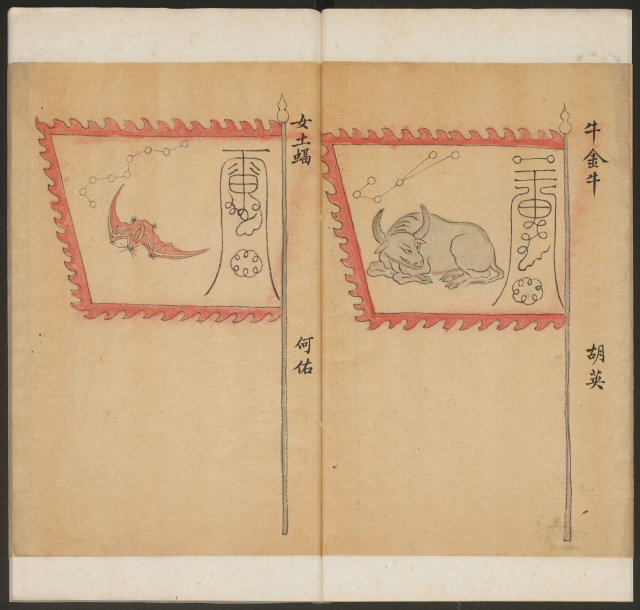 牛金牛
胡英
女土蝠
何佑